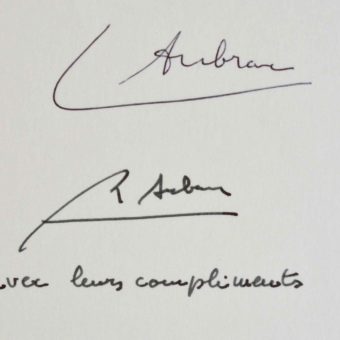 L Aubrac
R Aubrac
avec leurs compliments